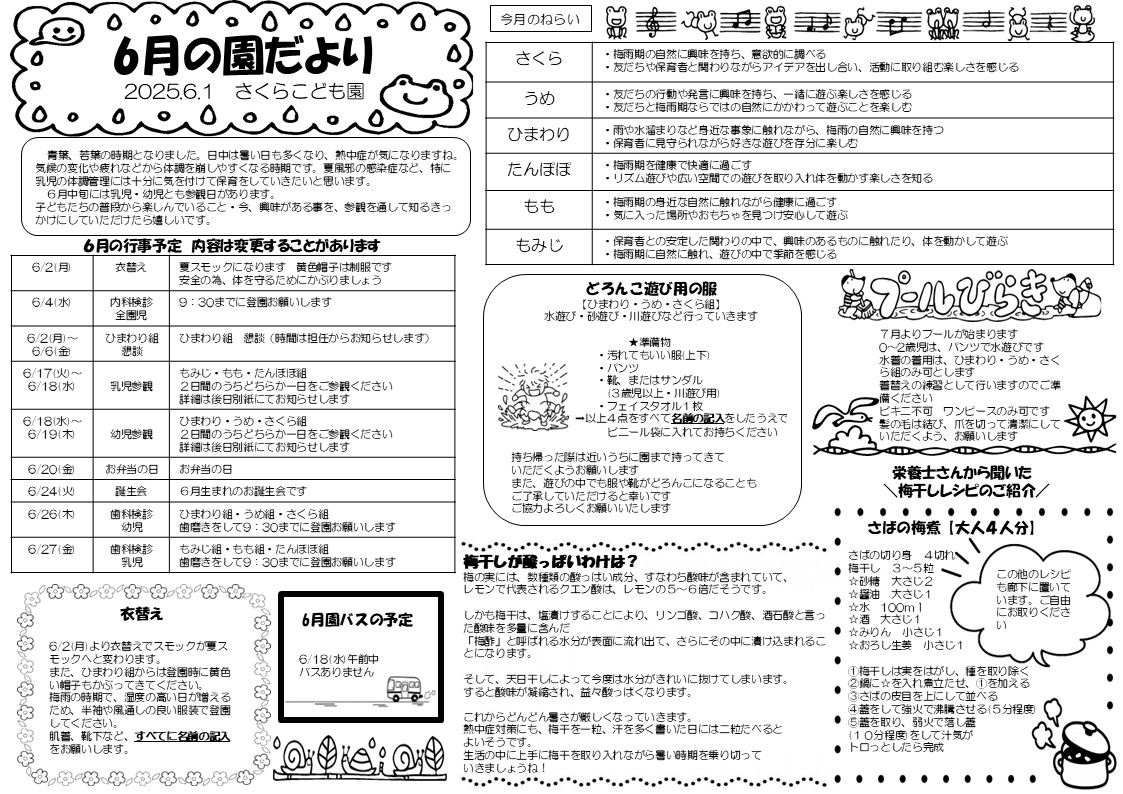 6月の園だより
2025.6.1　さくらこども園
青葉、若葉の時期となりました。日中は暑い日も多くなり、熱中症が気になりますね。
気候の変化や疲れなどから体調を崩しやすくなる時期です。夏風邪の感染症など、特に
乳児の体調管理には十分に気を付けて保育をしていきたいと思います。
６月中旬には乳児・幼児とも参観日があります。
子どもたちの普段から楽しんでいること・今、興味がある事を、参観を通して知るきっ
かけにしていただけたら嬉しいです。
6月の行事予定　内容は変更することがあります
6/2(月)　衣替え　夏スモックになります　黄色帽子は制服です
安全の為、体を守るためにかぶりましょう
6/4(水)　内科検診　９：30までに登園お願いします
全園児
6/2(月)～　ひまわり組　ひまわり組　懇談（時間は担任からお知らせします）
6/6(金)　懇談
6/17(火)～　乳児参観　もみじ・もも・たんぽぽ組
6/18(水)　２日間のうちどちらか一日をご参観ください
詳細は後日別紙にてお知らせします
6/18(水)～　幼児参観　ひまわり・うめ・さくら組
6/19(木)　２日間のうちどちらか一日をご参観ください
詳細は後日別紙にてお知らせします
6/20(金)　お弁当の日　お弁当の日
6/24(火)　誕生会　６月生まれのお誕生会です
6/26(木)　歯科検診　ひまわり組・うめ組・さくら組
幼児　歯磨きをして９：30までに登園お願いします
6/27(金)　歯科検診　もみじ組・もも組・たんぽぽ組
乳児　歯磨きをして９：30までに登園お願いします
衣替え
6/2(月)より衣替えでスモックが夏ス
モックへと変わります。
また、ひまわり組からは登園時に黄色
い帽子もかぶってきてください。
梅雨の時期で、湿度の高い日が増える
ため、半袖や風通しの良い服装で登園
してください。
肌着、靴下など、すべてに名前の記入
をお願いします。
6月園バスの予定
6/18(水)午前中
バスありません
今月のねらい
さくら　・梅雨期の自然に興味を持ち、意欲的に調べる
・友だちや保育者と関わりながらアイデアを出し合い、活動に取り組む楽しさを感じる
うめ　・友だちの行動や発言に興味を持ち、一緒に遊ぶ楽しさを感じる
・友だちと梅雨期ならではの自然にかかわって遊ぶことを楽しむ
ひまわり　・雨や水溜まりなど身近な事象に触れながら、梅雨の自然に興味を持つ
・保育者に見守られながら好きな遊びを存分に楽しむ
たんぽぽ　・梅雨期を健康で快適に過ごす
・リズム遊びや広い空間での遊びを取り入れ体を動かす楽しさを知る
もも　・梅雨期の身近な自然に触れながら健康に過ごす
・気に入った場所やおもちゃを見つけ安心して遊ぶ
もみじ　・保育者との安定した関わりの中で、興味のあるものに触れたり、体を動かして遊ぶ
・梅雨期に自然に触れ、遊びの中で季節を感じる
どろんこ遊び用の服
【ひまわり・うめ・さくら組】
水遊び・砂遊び・川遊びなど行っていきます
★準備物
・汚れてもいい服(上下)
・パンツ
・靴、またはサンダル
（３歳児以上・川遊び用）
・フェイスタオル１枚
→以上４点をすべて名前の記入をしたうえで
ビニール袋に入れてお持ちください
持ち帰った際は近いうちに園まで持ってきて
いただくようお願いします
また、遊びの中でも服や靴がどろんこになることも
ご了承していただけると幸いです
ご協力よろしくお願いいたします
プールびらき
７月よりプールが始まります
０～２歳児は、パンツで水遊びです
水着の着用は、ひまわり・うめ・さく
ら組のみ可とします
着替えの練習として行いますのでご準
備ください
ビキニ不可　ワンピースのみ可です
髪の毛は結び、爪を切って清潔にして
いただくよう、お願いします
梅干しが酸っぱいわけは？
梅の実には、数種類の酸っぱい成分、すなわち酸味が含まれていて、
レモンで代表されるクエン酸は、レモンの５～６倍だそうです。
しかも梅干は、塩漬けすることにより、リンゴ酸、コハク酸、酒石酸と言っ
た酸味を多量に含んだ
「梅酢」と呼ばれる水分が表面に流れ出て、さらにその中に漬け込まれるこ
とになります。
そして、天日干しによって今度は水分がきれいに抜けてしまいます。
すると酸味が凝縮され、益々酸っぱくなります。
これからどんどん暑さが厳しくなっていきます。
熱中症対策にも、梅干を一粒、汗を多く書いた日には二粒たべると
よいそうです。
生活の中に上手に梅干を取り入れながら暑い時期を乗り切って
いきましょうね！
栄養士さんから聞いた
＼梅干しレシピのご紹介／
さばの梅煮【大人４人分】
さばの切り身　４切れ
梅干し　３～５粒
☆砂糖　大さじ２
☆醤油　大さじ１
☆水　100ｍｌ
☆酒　大さじ１
☆みりん　小さじ１
☆おろし生姜　小さじ１
この他のレシピ
も廊下に置いて
います。ご自由
にお取りくださ
い
①梅干しは実をはがし、種を取り除く
②鍋に☆を入れ煮立たせ、①を加える
③さばの皮目を上にして並べる
④蓋をして強火で沸騰させる(５分程度)
⑤蓋を取り、弱火で落し蓋
(１０分程度)をして汁気が
トロっとしたら完成